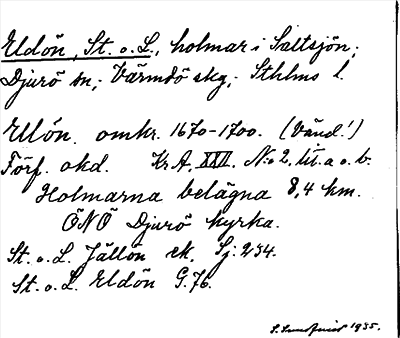 Eldön, St. o. L., holmar i Saltsjön;
Djurö sn, Värmdö skg, Sthlms l.
Ellön. omkr. 1670-1700. (Vänd!)
Förf. okd. Kr.A. XXII. N:o 2, litt. a o. b.
Holmarna belägna 8,4 km.
ÖNÖ Djurö kyrka.
St. o. L. Jällön ek. Sj: 234.
St. o. L. Eldön G. 76.
S. Lundquist 1935.